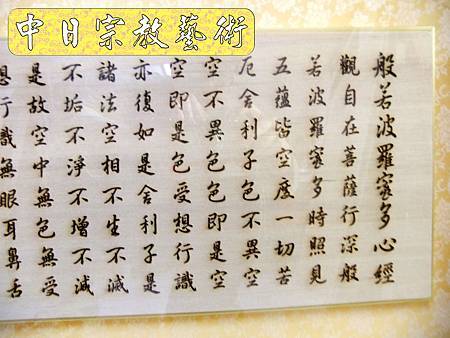 中日宗教藝術
般若波羅蜜多心經
觀自在菩薩行深般
若波羅蜜多時照見
五蘊皆空度一切苦
厄舍利子色不異空
空不異色色即是空
空即是色受想行識
亦復如是舍利子是
諸法空相不生不滅
不垢不淨不增不減
是故空中無色無受
想行識無眼耳鼻舌